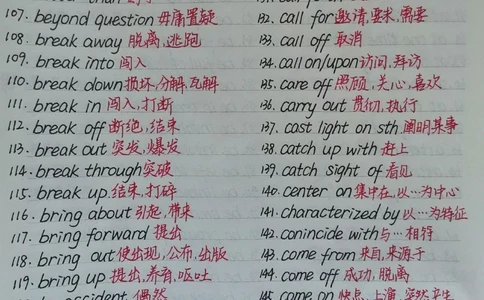 107. beyond question 毋庸置疑
108. break away 脱离,逃跑
109. break into 闯入
110. break down 损坏,分解,瓦解
111. break in 闯入,打断
112. break off 断绝,结束
113. break out 突发,爆发
114. break through 突破
115. break up 结束,打碎
116. bring about 引起,带来
117. bring forward 提出
118. bring out 使出现,公布,出版
119. bring up 提出,养育,呕吐
accident 偶然
132. call for 邀请,要求,需要
133. call off 取消
134. call on/upon 访问,拜访
135. care off 照顾,关心,喜欢
136. carry out 贯彻,执行
137. cast light on sth 阐明某事
138. catch up with 赶上
139. catch sight of 看见
140. center on 集中在,以…为中心
141. characterized by 以…为特征
142. conincide with 与…相符
143. come from 来自,来源于
144. come off 成功,脱离
145. come on 快点,上演,突然产生